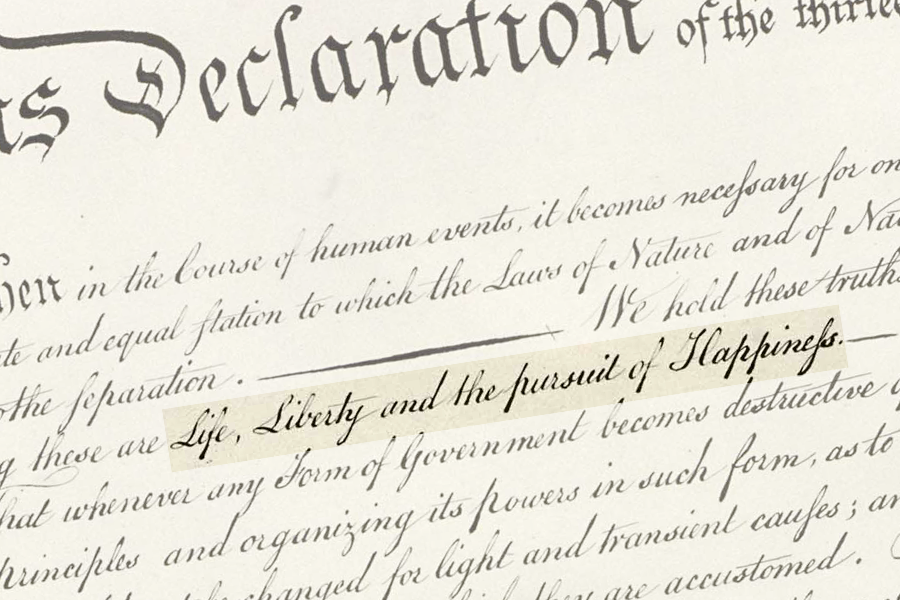 Declaration of the
in the Course of human events, it becomes neceſsary for
and equal ſtation to which the Laws of Nature and of
the ſeparation. We hold these truths
these are Life, Liberty and the pursuit of Happineſs.
whenever any Form of Government becomes destructive
principles and organizing its powers in such form, as to
changed for light and transient cauſes;
they are accustomed.